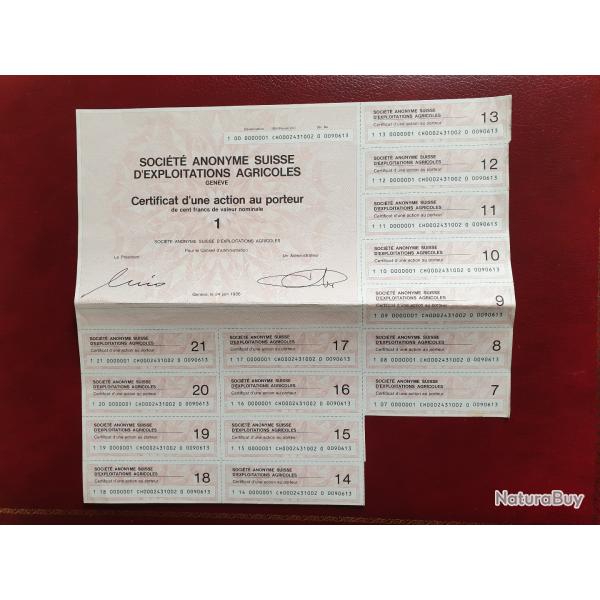 1 00 0000001 CH0002431002 0 0090613
SOCIÉTÉ ANONYME SUISSE
D'EXPLOITATIONS AGRICOLES
GENÈVE
Certificat d'une action au porteur
de cent francs de valeur nominale
1
SOCIÉTÉ ANONYME SUISSE D'EXPLOITATIONS AGRICOLES
Pour le Conseil d'administration
Le Président
Un Administrateur
Genève, le 24 juin 1986
SOCIÉTÉ ANONYME SUISSE
D'EXPLOITATIONS AGRICOLES
Certificat d'une action au porteur
13
1 13 0000001 CH0002431002 0 0090613
SOCIÉTÉ ANONYME SUISSE
D'EXPLOITATIONS AGRICOLES
Certificat d'une action au porteur
12
1 12 0000001 CH0002431002 0 0090613
SOCIÉTÉ ANONYME SUISSE
D'EXPLOITATIONS AGRICOLES
Certificat d'une action au porteur
11
1 11 0000001 CH0002431002 0 0090613
SOCIÉTÉ ANONYME SUISSE
D'EXPLOITATIONS AGRICOLES
Certificat d'une action au porteur
10
1 10 0000001 CH0002431002 0 0090613
SOCIÉTÉ ANONYME SUISSE
D'EXPLOITATIONS AGRICOLES
Certificat d'une action au porteur
9
1 09 0000001 CH0002431002 0 0090613
SOCIÉTÉ ANONYME SUISSE
D'EXPLOITATIONS AGRICOLES
Certificat d'une action au porteur
8
1 08 0000001 CH0002431002 0 0090613
SOCIÉTÉ ANONYME SUISSE
D'EXPLOITATIONS AGRICOLES
Certificat d'une action au porteur
7
1 07 0000001 CH0002431002 0 0090613
SOCIÉTÉ ANONYME SUISSE
D'EXPLOITATIONS AGRICOLES
Certificat d'une action au porteur
21
1 21 0000001 CH0002431002 0 0090613
SOCIÉTÉ ANONYME SUISSE
D'EXPLOITATIONS AGRICOLES
Certificat d'une action au porteur
17
1 17 0000001 CH0002431002 0 0090613
SOCIÉTÉ ANONYME SUISSE
D'EXPLOITATIONS AGRICOLES
Certificat d'une action au porteur
20
1 20 0000001 CH0002431002 0 0090613
SOCIÉTÉ ANONYME SUISSE
D'EXPLOITATIONS AGRICOLES
Certificat d'une action au porteur
16
1 16 0000001 CH0002431002 0 0090613
SOCIÉTÉ ANONYME SUISSE
D'EXPLOITATIONS AGRICOLES
Certificat d'une action au porteur
19
1 19 0000001 CH0002431002 0 0090613
SOCIÉTÉ ANONYME SUISSE
D'EXPLOITATIONS AGRICOLES
Certificat d'une action au porteur
15
1 15 0000001 CH0002431002 0 0090613
SOCIÉTÉ ANONYME SUISSE
D'EXPLOITATIONS AGRICOLES
Certificat d'une action au porteur
18
1 18 0000001 CH0002431002 0 0090613
SOCIÉTÉ ANONYME SUISSE
D'EXPLOITATIONS AGRICOLES
Certificat d'une action au porteur
14
1 14 0000001 CH0002431002 0 0090613
NaturaBuy